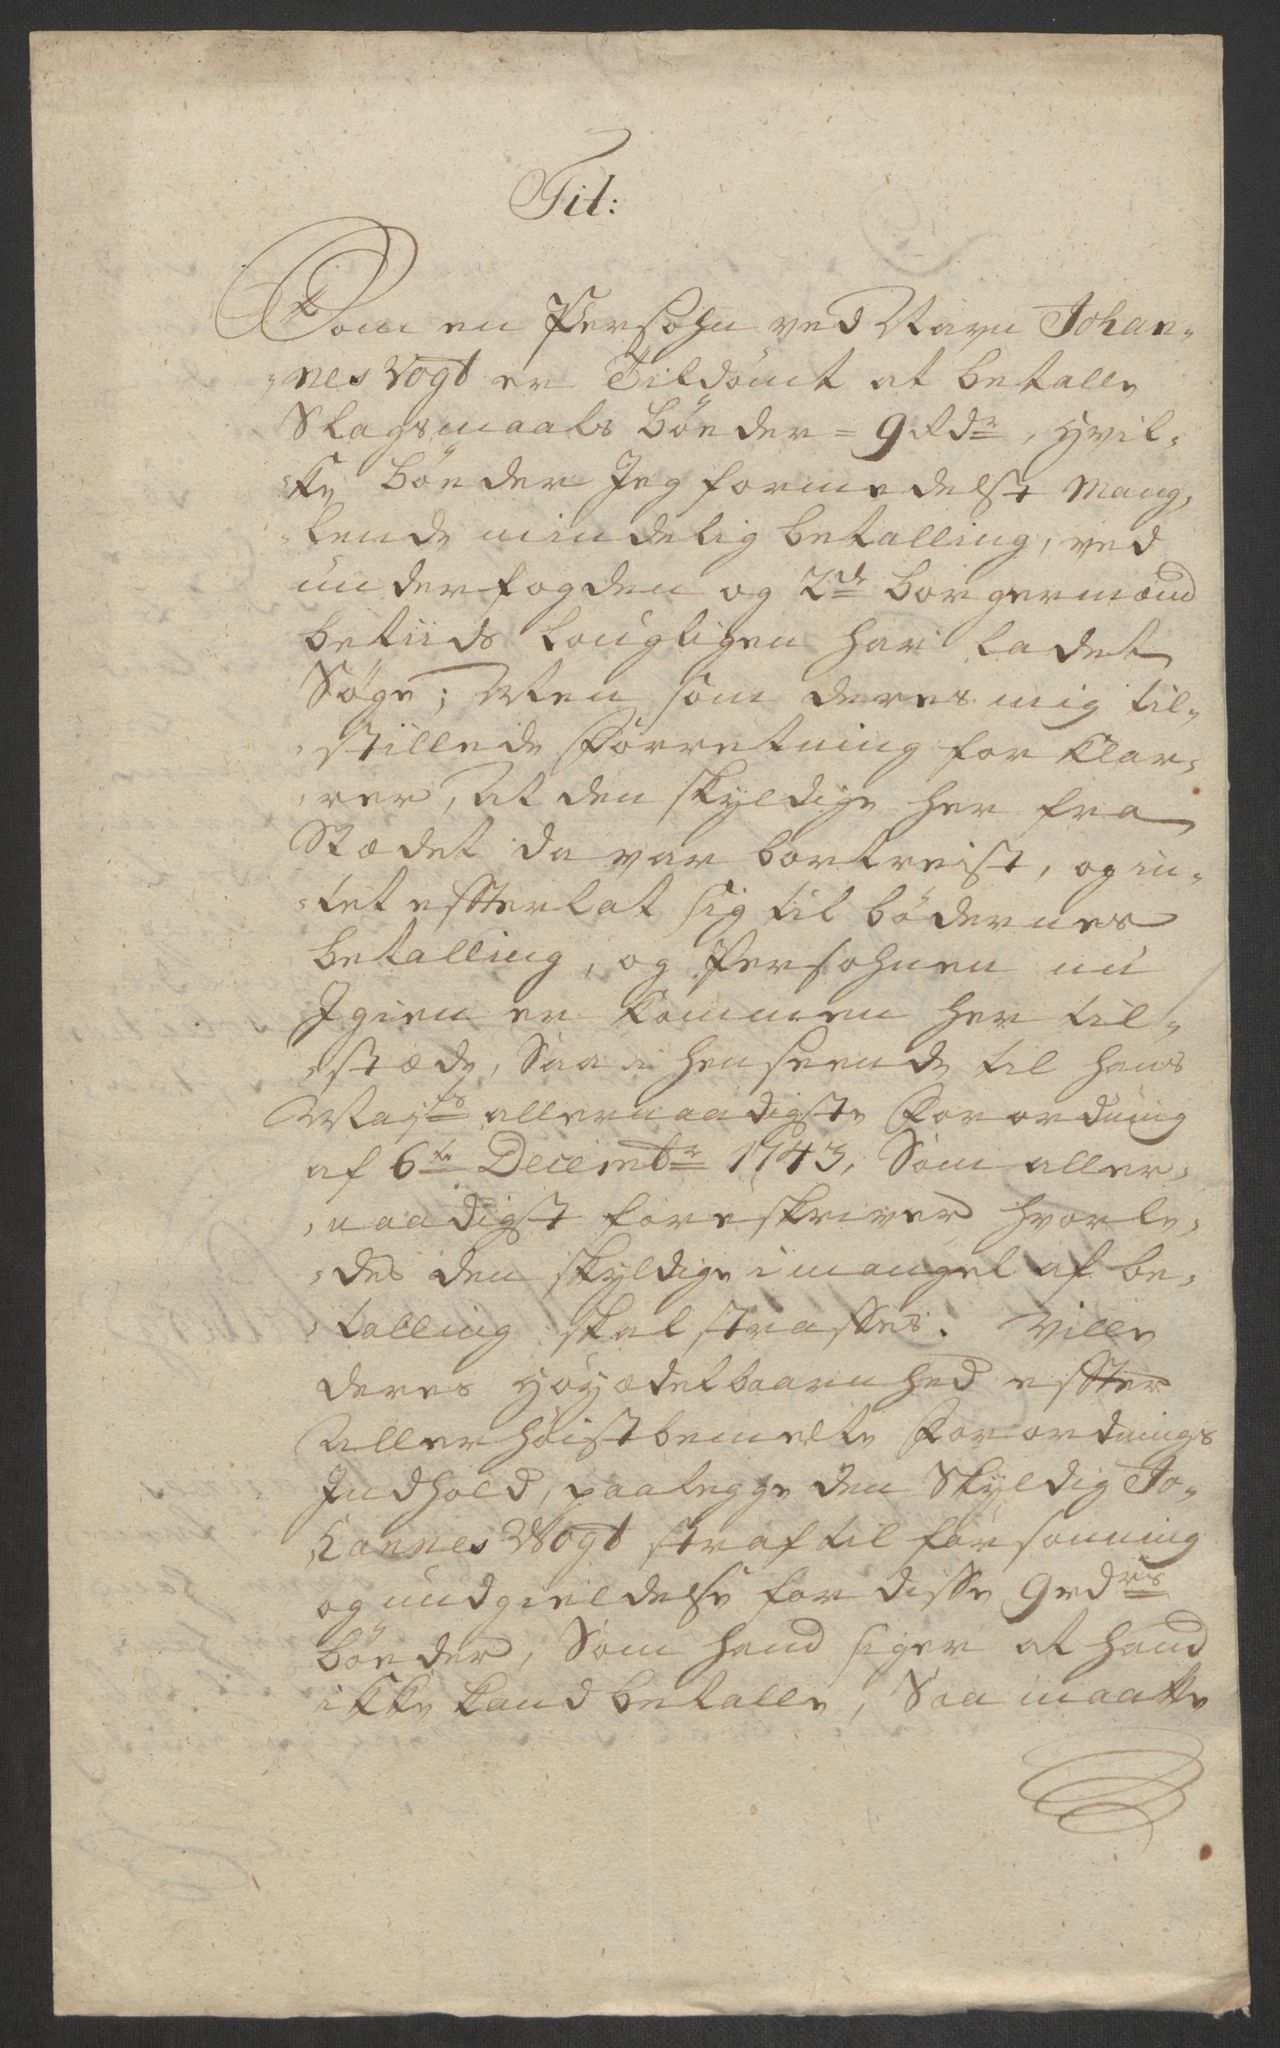 Tit:
Som en Persohn ved Navn Johan-
-nes Vogt er Tildømt at betalle
Slagsmaals bøeder = 9 Rdr, hvil-
-ke bøeder Jeg formedelst Mang-
-lende mindelig betalling, ved
underfogden og 2de borgermænd
betiids lougligen har ladet
Søge; Men som deres mig til-
-stillede Forretning for klar-
-rer, At den skyldige her fra
Stædet da var bortreist, og in-
-tet effterlat sig til bødernes
betalling, og Persohnen nu
Igien er kommen her til-
-stæde, Saa i henseende til hans
Mayts allernaadigste Forordning
af 6te Decembr 1743, Som aller-
-naadigst foreskriver hvorle-
-des den skyldige i mangel af be-
-talling skal straffes. Ville
deres Høyædelbaarnhed effter
Allerhøistbemelte Forordnings
Indhold, paalegge den Skyldig Jo-
hannes Vogt straf til forsonning
og undgieldelse for disse 9 rdrs
bøeder, Som hand siger at hand
ikke kand betalle, Saa maatte